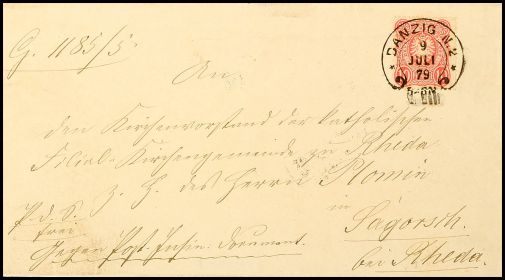 G. 1185/5.
DANZIG N. 2
9
JULI
79
5-6N
An
den Kirchenvorstand der katholischen
Filial-Kirchengemeinde zu Rheda
z. H. des Herrn Plomin
in
Sagorsch.
bei Rheda.
P. d. S.
frei
Gegen Post-Insin. Document.